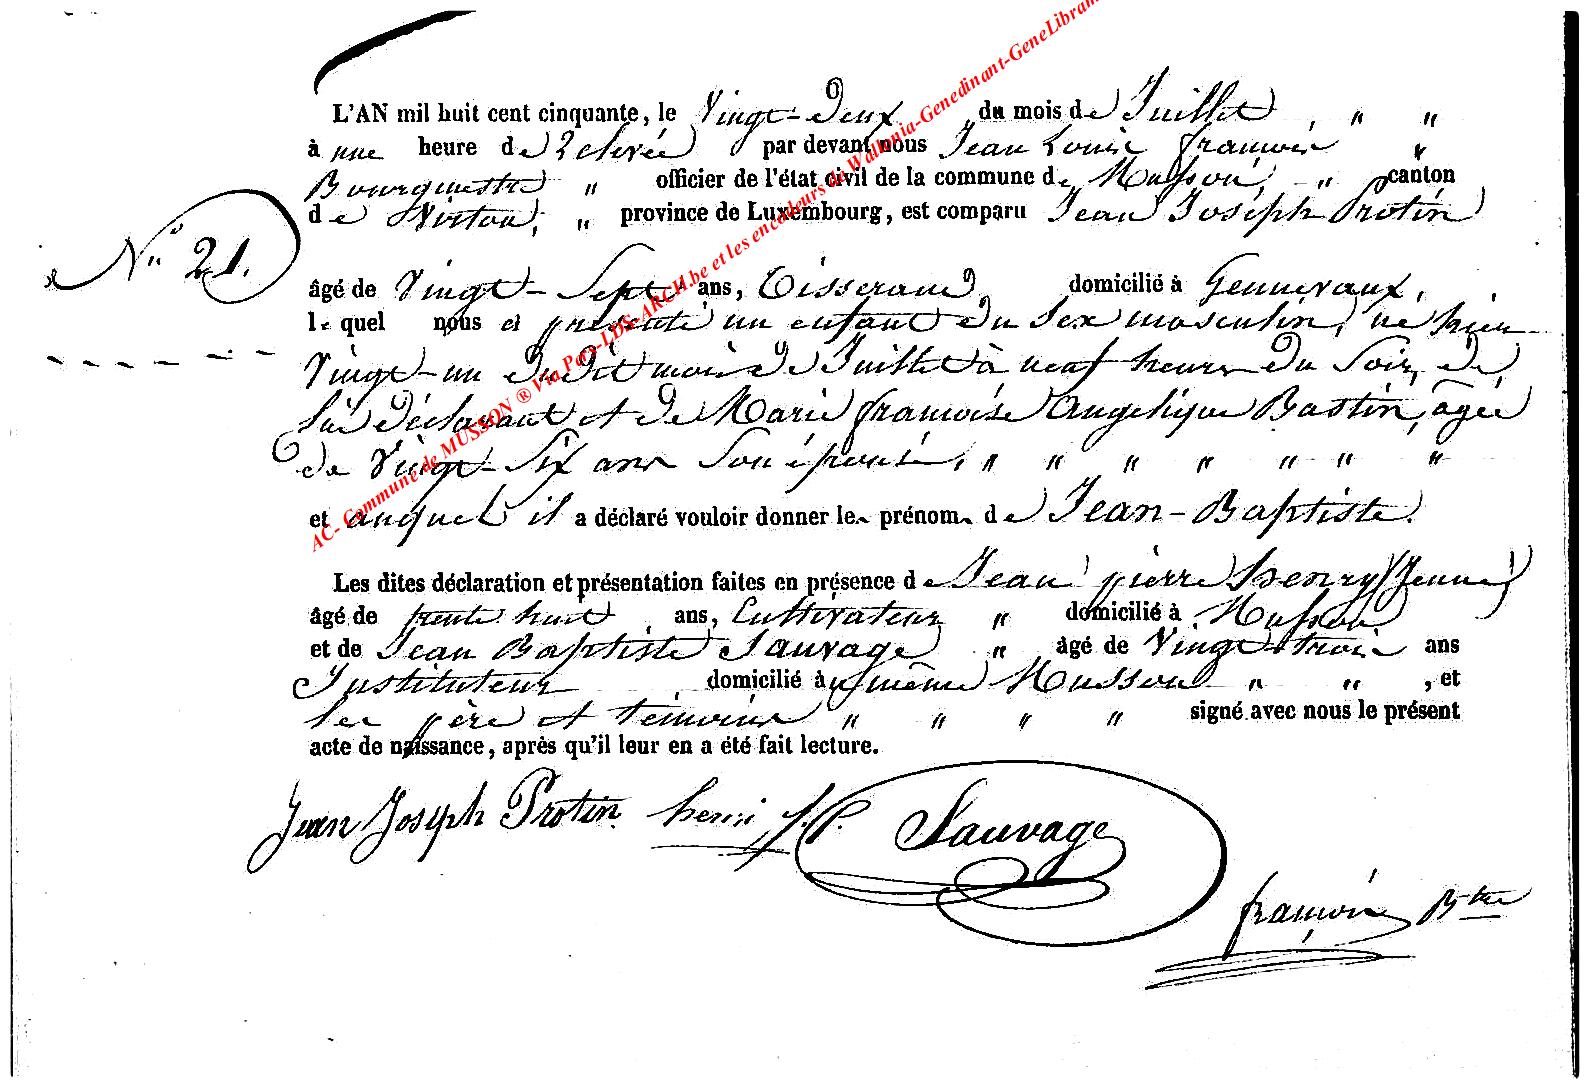 L'AN mil huit cent cinquante, le Vingt-Deux du mois de Juillet, " "
à une heure de relevée par devant nous Jean Louis françois "
Bourgmestre " officier de l'état civil de la commune de Musson, " canton
de Virton, " province de Luxembourg, est comparu Jean Joseph Protin
N° 21.
âgé de Vingt-Sept ans, Tisserand domicilié à Gennevaux,
lequel nous a présenté un enfant du Sex masculin, né hier
Vingt-un dudit mois de Juillet à neuf heures du Soir, de
lui déclarant et de Marie françoise Angelique Bastin, agée
de Vingt-Six ans Son épouse, " " " " " " "
et auquel il a déclaré vouloir donner le prénom de Jean-Baptiste.
Les dites déclaration et présentation faites en présence de Jean pierre henry (Jeune)
âgé de trente huit, ans, Cultivateur " domicilié à Musson
et de Jean Baptiste Sauvage " âgé de Vingt-trois ans
Instituteur, domicilié à même Musson " " , et
les père et témoins " " " " signé avec nous le présent
acte de naissance, après qu'il leur en a été fait lecture.
Jean Joseph Protin henri j. P. Sauvage
françois Btre
AC- Commune de MUSSON ® Via Par-LDS-ARCH.be et les encodeurs de Wallonia-Genedinant-GeneLibram